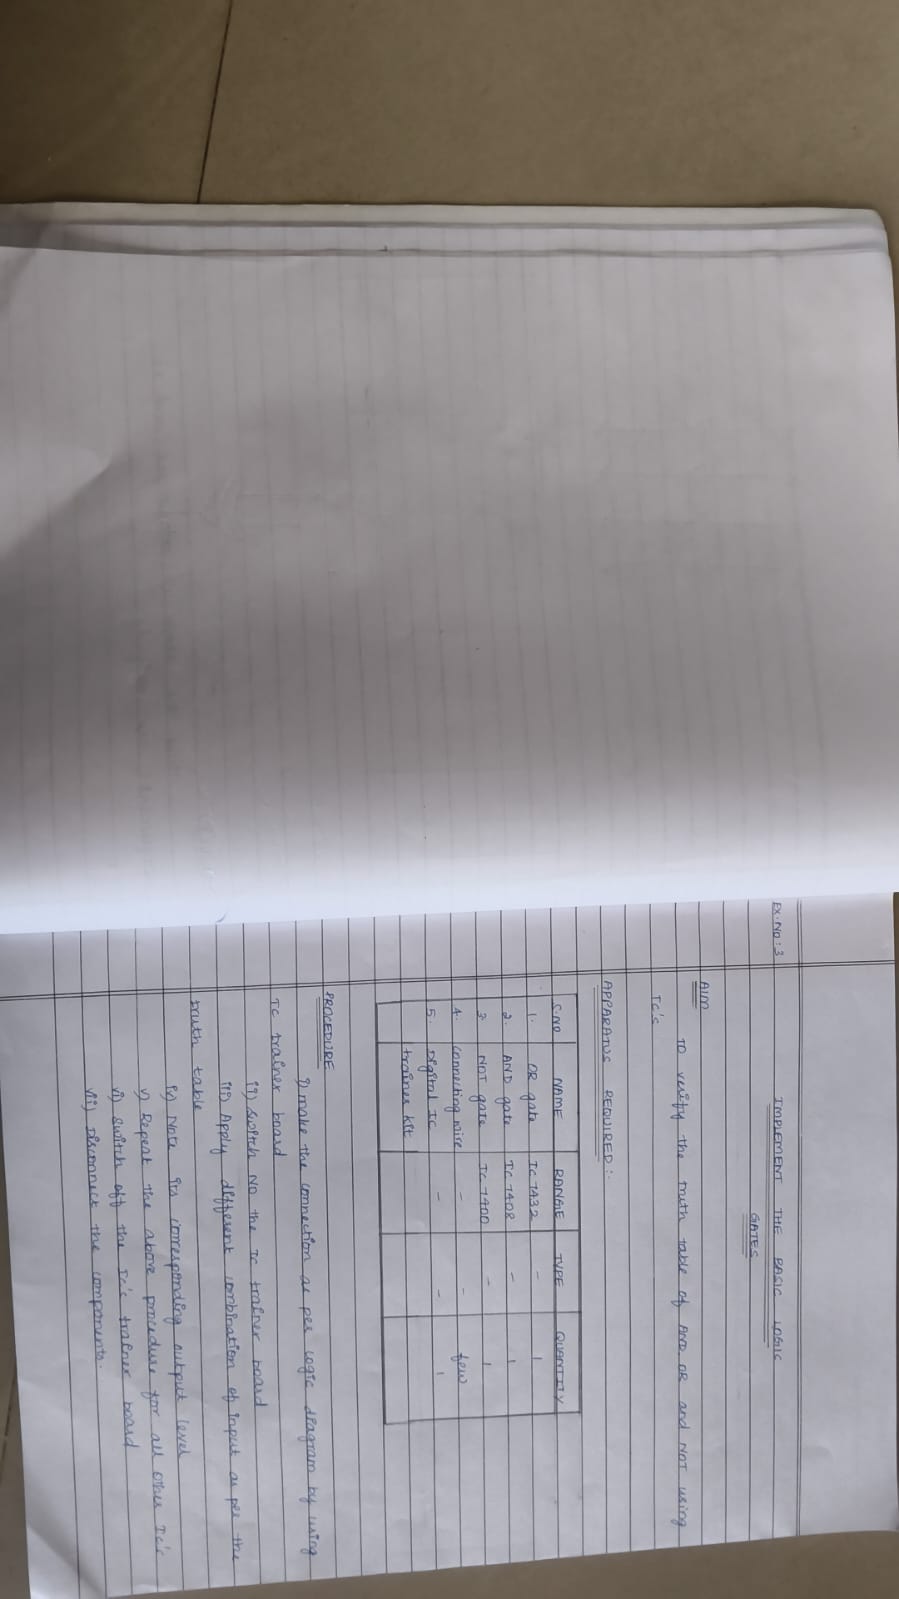 Ex.No:3
IMPLEMENT THE BASIC LOGIC
GATES
AIM
To verify the truth table of AND OR and NOT using
Ic's
APPARATUS REQUIRED:-
S.NO NAME RANGE TYPE QUANTITY
1. OR gate IC 7432 - 1
2. AND gate IC 7408 - 1
3. NOT gate IC 7400 - 1
4. connecting wire - - few
5. Digital IC - - 1
trainer kit
PROCEDURE
i) make the connection as per logic diagram by using
Ic trainer board
ii) switch NO the Ic trainer board
iii) Apply different combination of input as per the
truth table
iv) Note its corresponding output level
v) Repeat the above procedure for all other Ic's
vi) switch off the Ic's trainer board
vii) Disconnect the components.